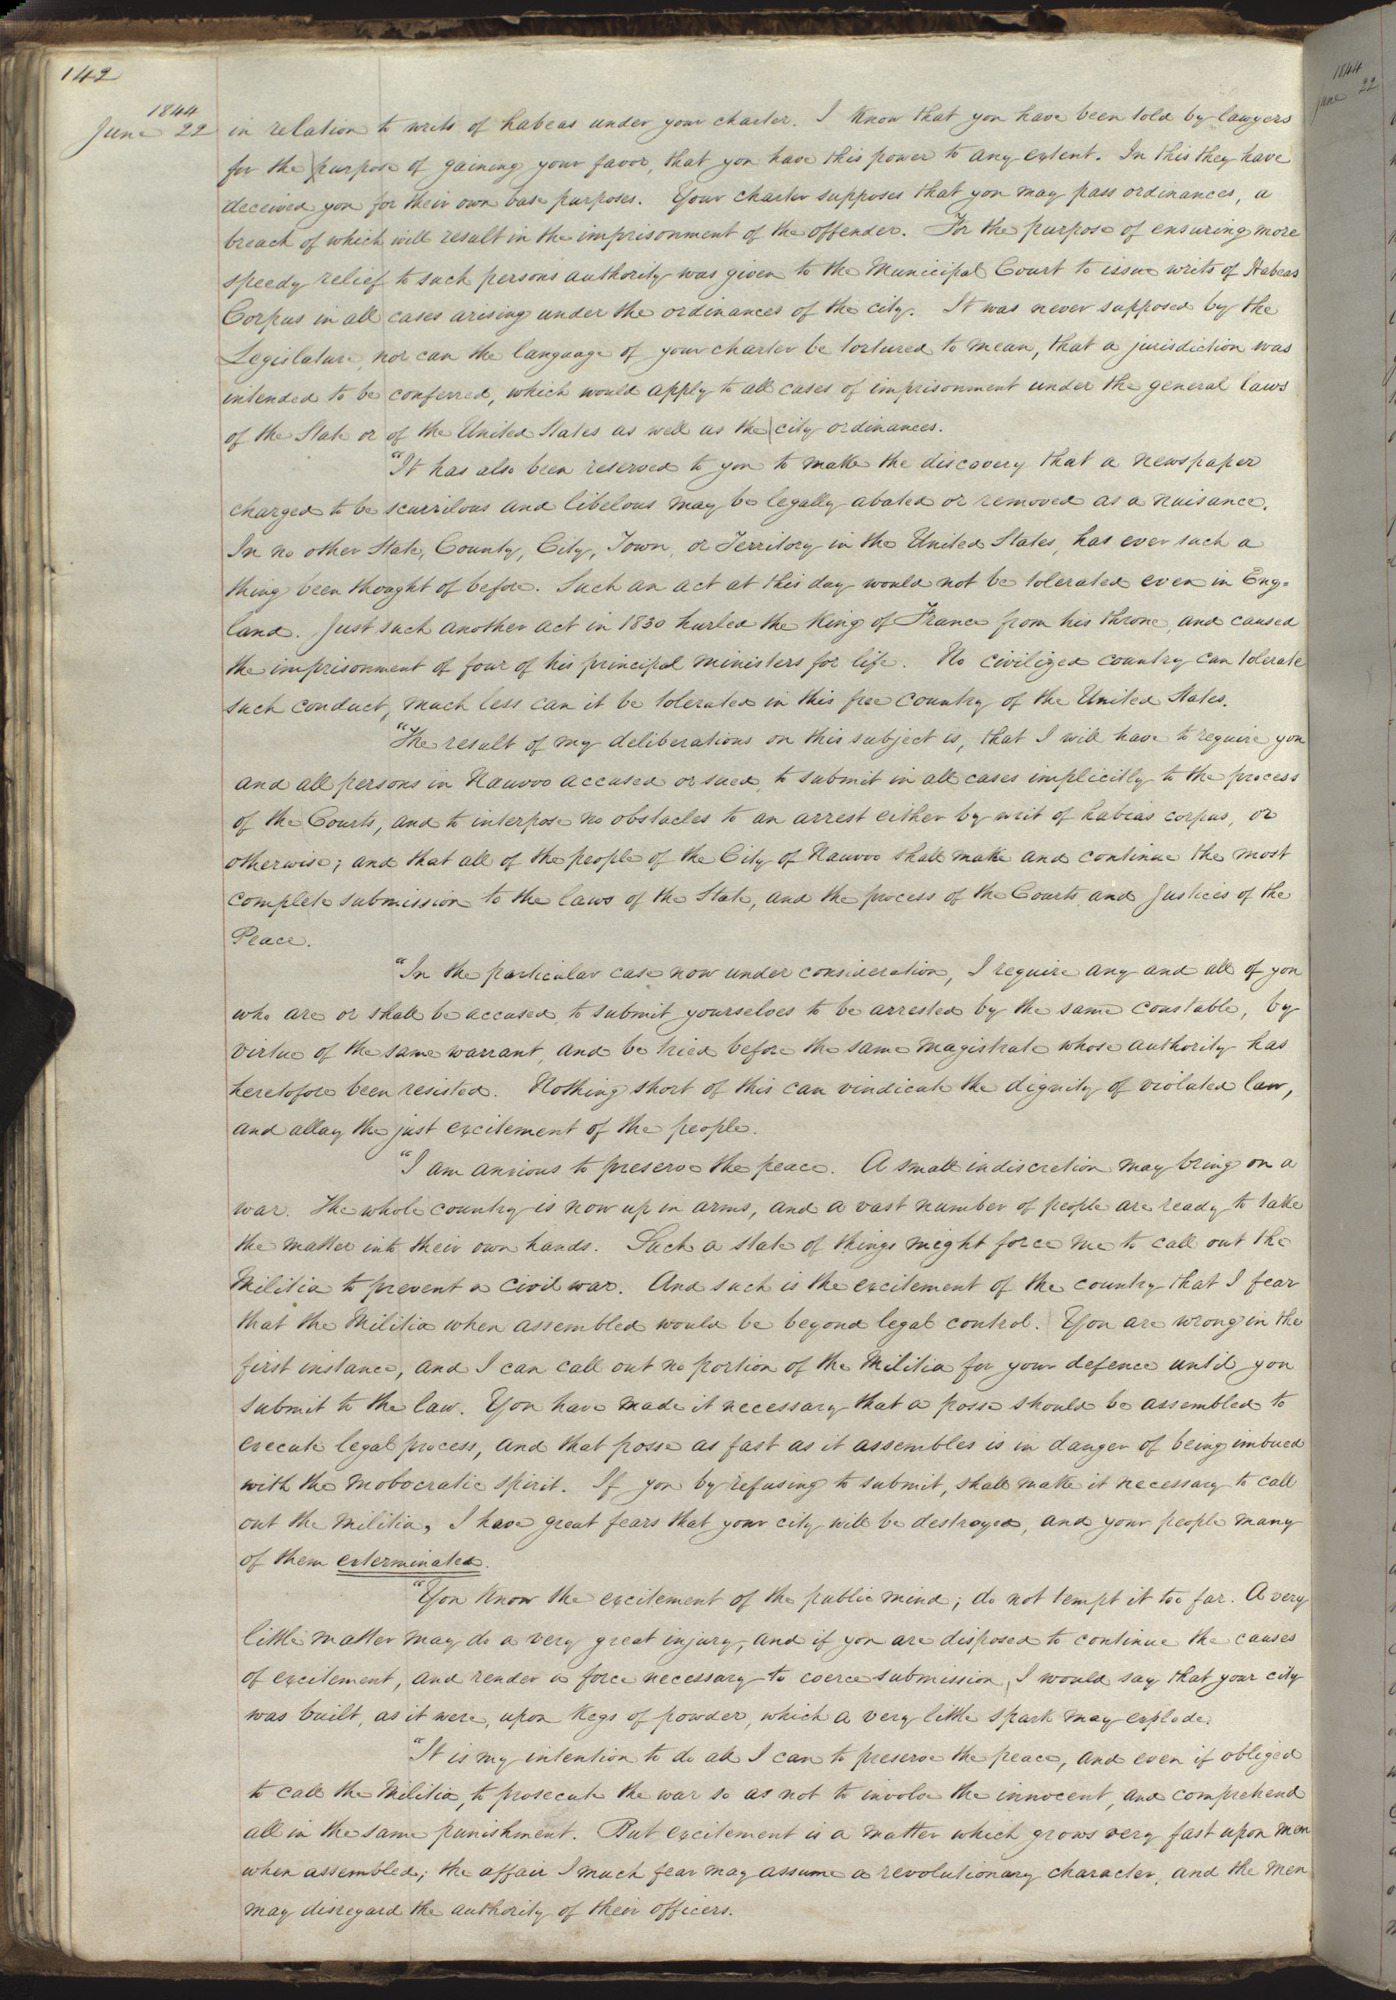 142
1844
June 22 in relation to writs of habeas under your charter. I know that you have been told by lawyers
for the purpose of gaining your favor, that you have this power to any extent. In this they have
deceived you for their own base purposes. Your charter supposes that you may pass ordinances, a
breach of which will result in the imprisonment of the offender. For the purpose of ensuring more
speedy relief to such persons authority was given to the Municipal Court to issue writs of Habeas
Corpus in all cases arising under the ordinances of the city. It was never supposed by the
Legislature, nor can the language of your charter be tortured to mean, that a jurisdiction was
intended to be conferred, which would apply to all cases of imprisonment under the general laws
of the State or of the United States as well as the city ordinances.
"It has also been reserved to you to make the discovery that a newspaper
charged to be scurrilous and libelous may be legally abated or removed as a nuisance.
In no other State, County, City, Town, or Territory in the United States, has ever such a
thing been thought of before. Such an act at this day would not be tolerated even in Eng=
land. Just such another act in 1830 hurled the King of France from his throne, and caused
the imprisonment of four of his principal ministers for life. No civilized country can tolerate
such conduct, much less can it be tolerated in this free country of the United States.
"The result of my deliberations on this subject is, that I will have to require you
and all persons in Nauvoo accused or sued, to submit in all cases implicitly to the process
of the Courts, and to interpose no obstacles to an arrest either by writ of habeas corpus, or
otherwise; and that all of the people of the City of Nauvoo shall make and continue the most
complete submission to the laws of the State, and the process of the Courts and Justices of the
Peace.
"In the particular case now under consideration, I require any and all of you
who are or shall be accused, to submit yourselves to be arrested by the same constable, by
virtue of the same warrant, and be tried before the same magistrate whose authority has
heretofore been resisted. Nothing short of this can vindicate the dignity of violated law,
and allay the just excitement of the people.
"I am anxious to preserve the peace. A small indiscretion may bring on a
war. The whole country is now up in arms, and a vast number of people are ready to take
the matter into their own hands. Such a state of things might force me to call out the
Militia to prevent a civil war. And such is the excitement of the country that I fear
that the Militia when assembled would be beyond legal control. You are wrong in the
first instance, and I can call out no portion of the Militia for your defence until you
submit to the law. You have made it necessary that a posse should be assembled to
execute legal process, and that posse as fast as it assembles is in danger of being imbued
with the mobocratic spirit. If you by refusing to submit, shall make it necessary to call
out the Militia, I have great fears that your city will be destroyed, and your people many
of them exterminated.
"You know the excitement of the public mind; do not tempt it too far. A very
little matter may do a very great injury, and if you are disposed to continue the causes
of excitement, and render a force necessary to coerce submission, I would say that your city
was built, as it were, upon kegs of powder, which a very little spark may explode.
"It is my intention to do all I can to preserve the peace, and even if obliged
to call the Militia, to prosecute the war so as not to involve the innocent, and comprehend
all in the same punishment. But excitement is a matter which grows very fast upon men
when assembled; the affair I much fear may assume a revolutionary character, and the men
may disregard the authority of their officers.
1844
June 22